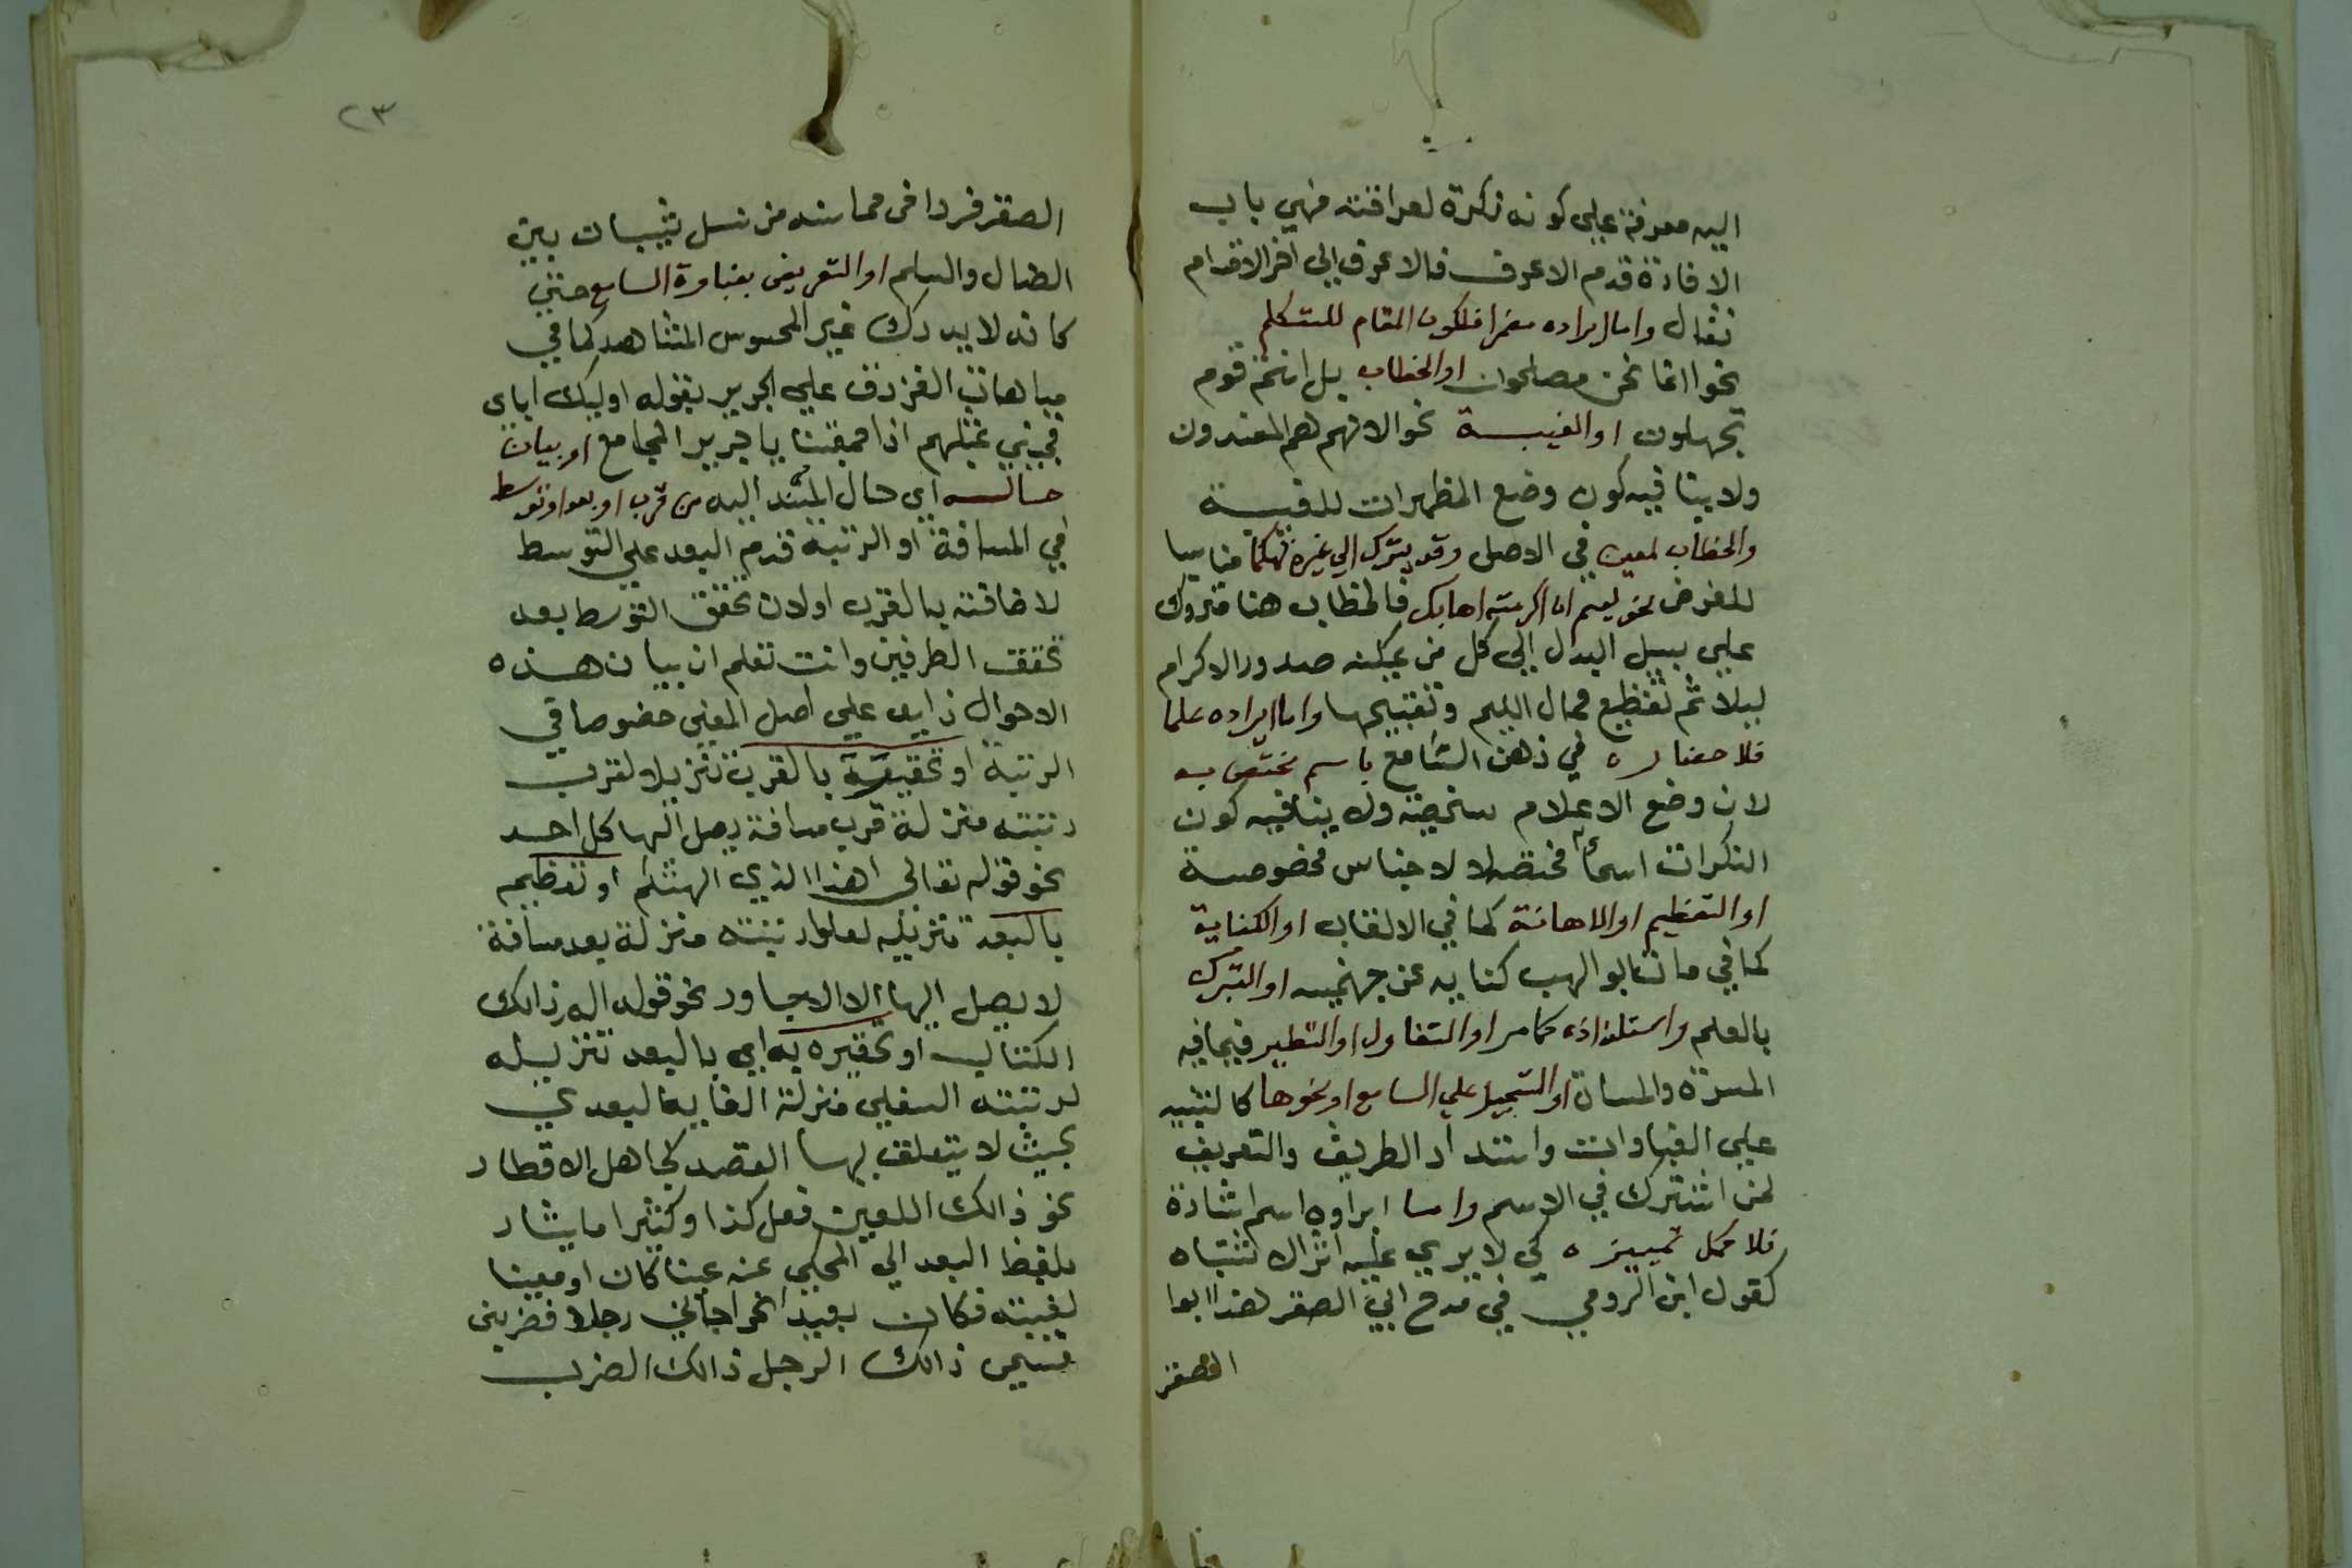 اليه معرفة علي كونه نكرة لعراقته فهي باب
الافادة قدم الاعرف فالاعرف الي اخر الاقدام
فقال واما ايراده مضمرا فلكون المقام للمتكلم
نحو انما نحن مصلحون او الخطاب بل انتم قوم
تجهلون او الغيبة نحو الا انهم هم المفسدون
ولا ينافيه كون وضع المظهرات للغيبة
والخطاب لمعين في الاصل وقد يترك الي غيره
للغرض نحو ليم ان اكرمته اهانك فالخطاب هنا متروك
علي سبيل البدل الي كل من يمكنه صدور الاكرام
ليلايم تفظيع اللييم وتقبيحها واما ايراده علما
فلاحضاره في ذهن السامع باسم مختص به
لان وضع الاعلام شخصية ولا ينافيه كون
النكرات اسماء مختصة لاجناس مخصوصة
او التعظيم او الاهانة كما في الالقاب او الكناية
كما في مات ابو الهب كنايه عن جهنميه او التبرك
بالعلم واستلذاذه كما مر او التفاول او التطير فيما فيه
المسرة والمساة او التسجيل علي السامع او نحوها كالتنبيه
علي الغباوات واستنداد الطريف والتعريف
لمن اشترك في الاسم واما ايراده اسم اشارة
فلاكمل تمييزه كي لا يري عليه اثر الاشتباه
كقول ابن الرومي في مدح ابي الصقر هذا ابوا
الصقر
٢٣
الصقر فردا في محاسنه من نسل شيبان بين
الضال والسلم او التعريض بغباوة السامع حتي
كانه لا يدرك غير المحسوس المشاهد كما في
مباهات الفرزدق علي الجرير بقوله اوليك اباي
فجيني بمثلهم اذا جمعتنا يا جرير المجامع او بيان
حاله اي حال المسند اليه من قرب او بعد او توسط
في المسافة او الرتبة قدم البعد علي التوسط
لاضافته بالقرب اولان تحقق التوسط بعد
تحقق الطرفين وانت تعلم ان بيان هذه
الاحوال زايد علي اصل المعني خصوصا في
الرتبة او تحقيره بالقرب تنزيلا لقرب
رتبته منزلة قرب مسافة يصل اليها كل احد
نحو قوله تعالي اهذا الذي الهتكم او تعظيمه
بالبعد تنزيله لعلو رتبته منزلة بعد مسافة
لا يصل اليها الا نحو قوله الم ذالك
الكتاب او تحقيره به اي بالبعد تنزيله
لرتبته السفلي منزلة الغايه البعدي
بحيث لا يتعلق بها القصد كجاهل الاقطار
نحو ذالك اللعين فعل كذا وكثيرا ما يشار
بلفظ البعد الي المحكي عنه عينا كان او معينا
لغيبته فكان بعيد نحو جاني رجل فضربني
فسمي ذالك الرجل ذالك الضرب